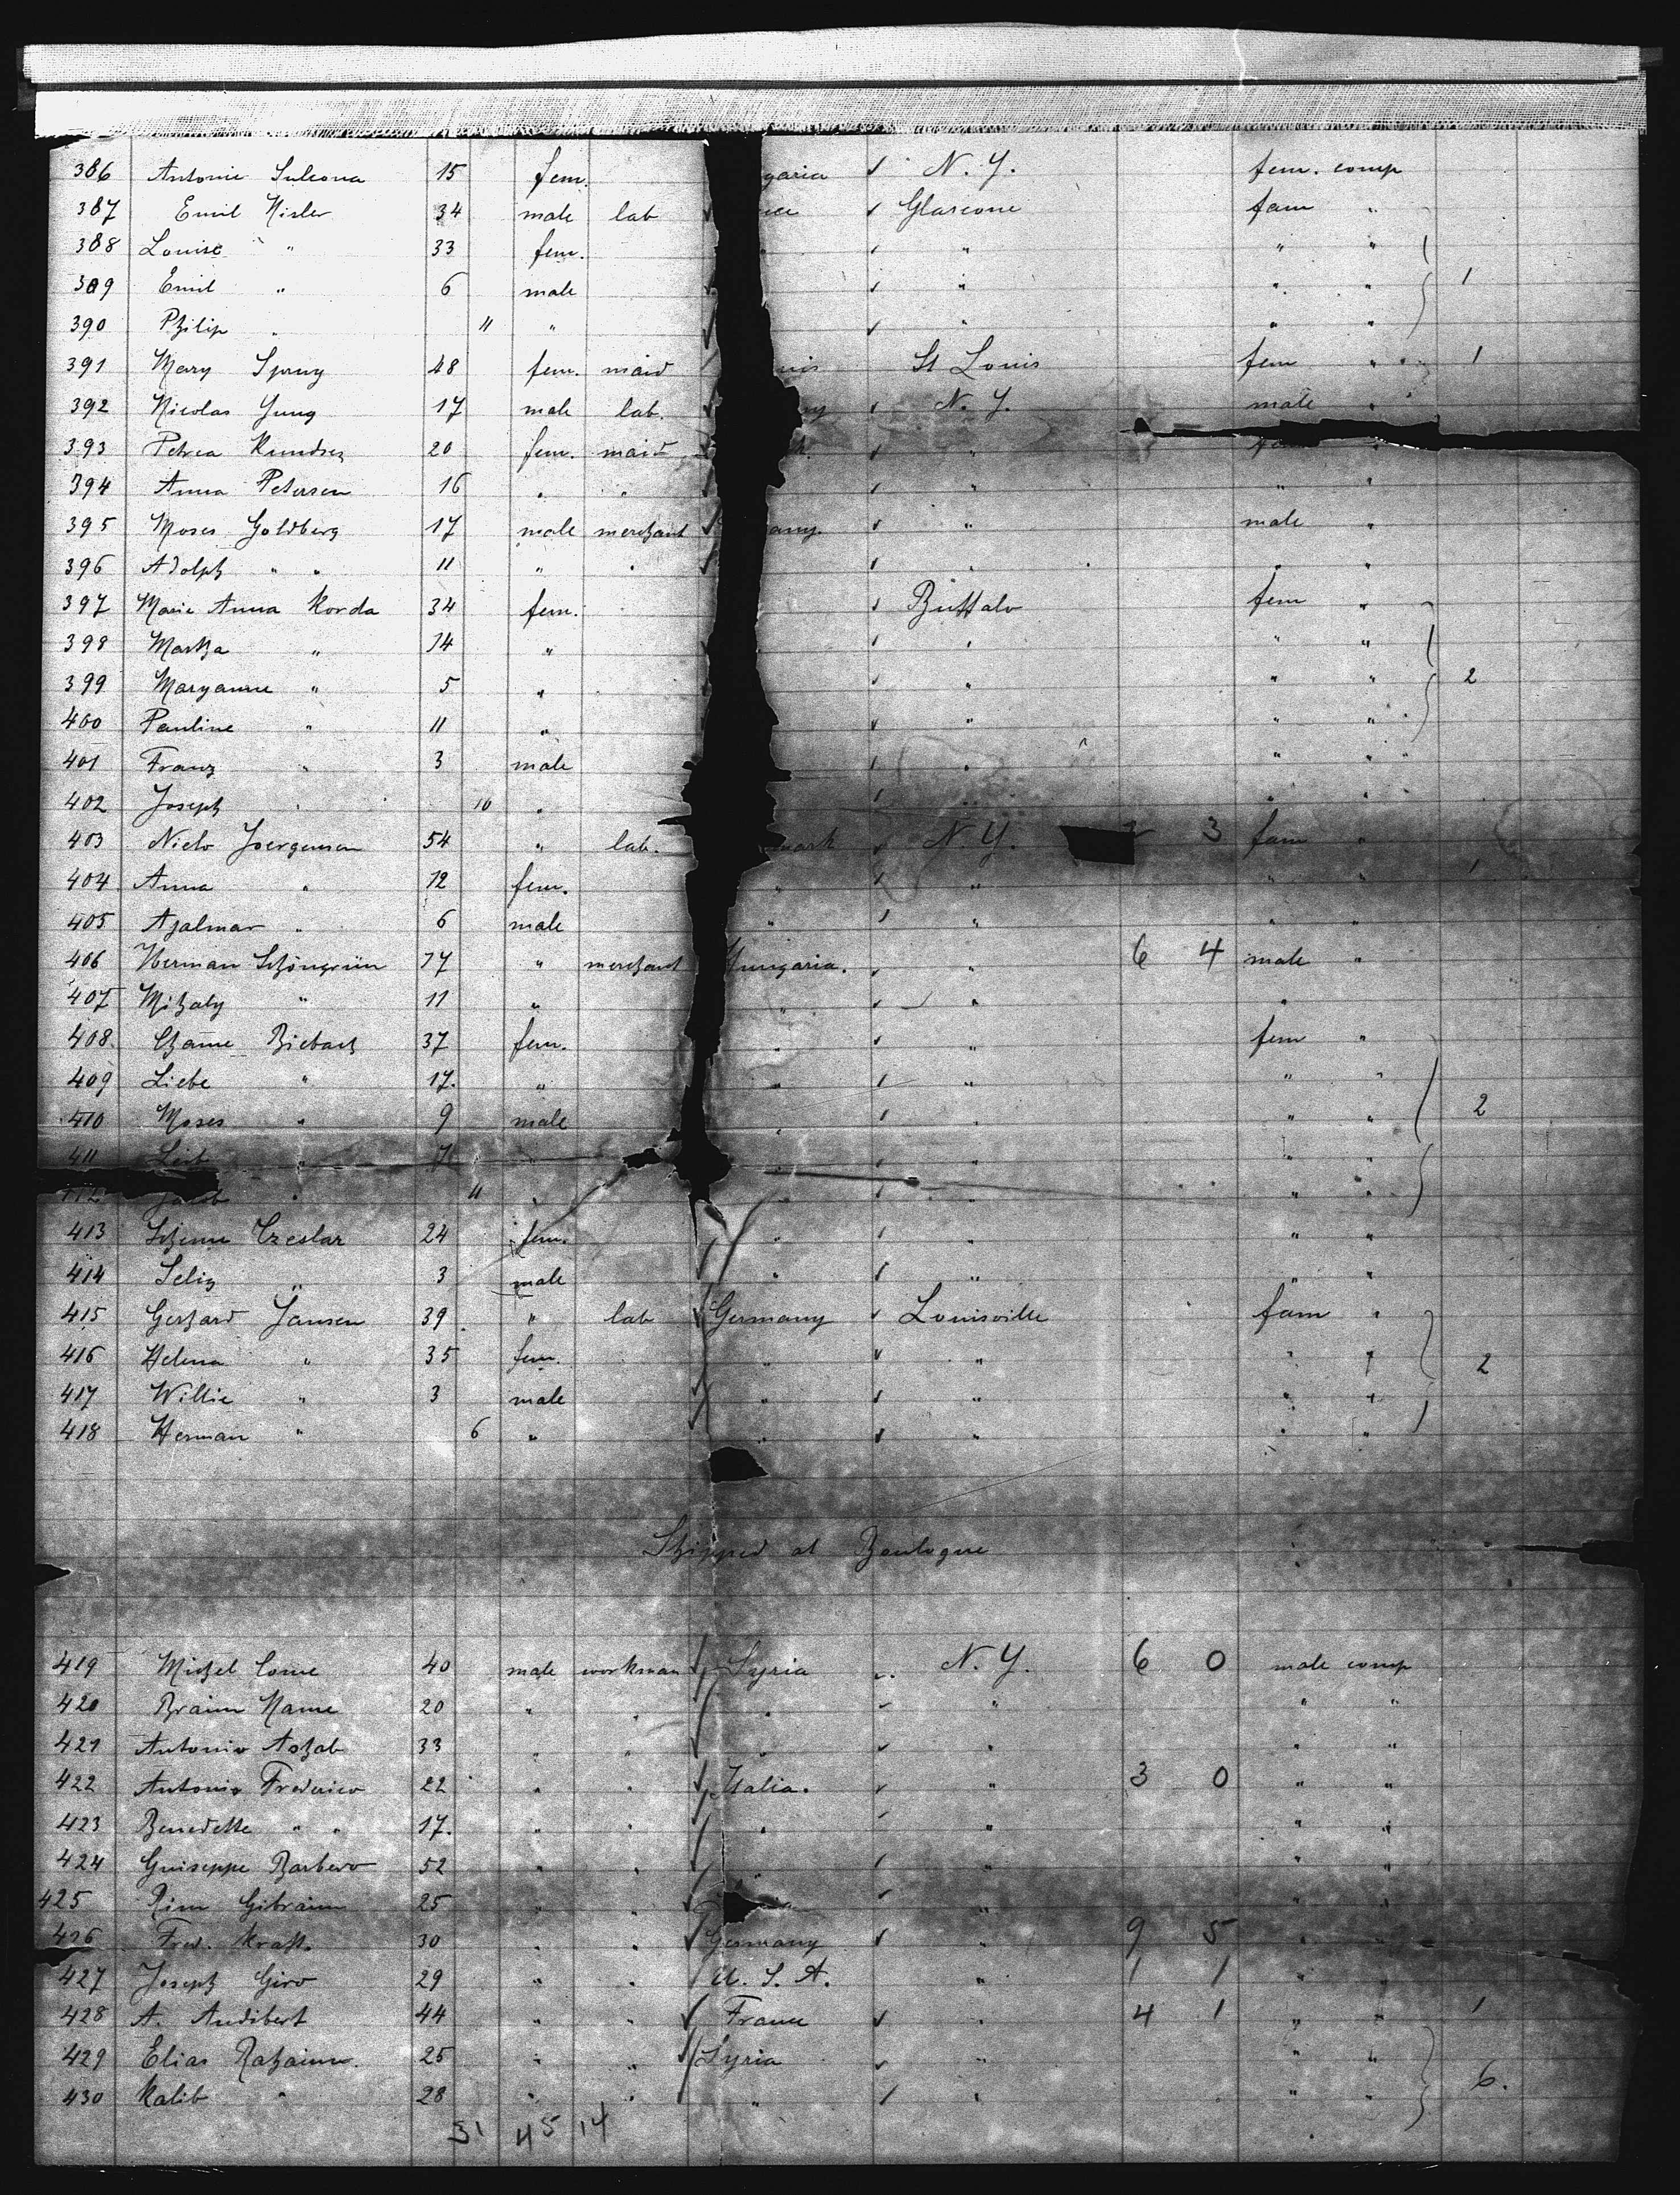 386 Antonie Sulcova 15 fem. garia ✓ N. Y. fem. comp
387 Emil Nisler 34 male lab ✓ ✓ Glascone fam "
388 Louise " 33 fem. " ✓ " " "
389 Emil " 6 male ✓ " " " 1
390 Philip " 11 " ✓ " " "
391 Mary Spruy 48 fem. maid uis St Louis fem " 1
392 Nicolas Yung 17 male lab. ny ✓ N. Y. male "
393 Petrea Knudsen 20 fem. maid k. ✓ " "
394 Anna Petersen 16 " " ✓ " " "
395 Moses Goldberg 17 male merchant ✓ any. ✓ " male "
396 Adolph " " 11 " " ✓ " "
397 Marie Anna Korda 34 fem. ✓ Buffalo fem "
398 Martha " 14 " ✓ " " "
399 Maryanne " 5 " ✓ " " " 2
400 Pauline " 11 " ✓ " " "
401 Franz " 3 male ✓ " " "
402 Joseph " 10 " ✓ " " "
403 Niels Joergensen 54 " lab. mark ✓ N. Y. 3 fam "
404 Anna " 12 fem. " ✓ " " " 1
405 Ahalmar " 6 male " ✓ " " "
406 Herman Schöngrün 17 " merchant Hungaria. ✓ " 6 4 male "
407 Mihaly " 11 " " ✓ " "
408 Channe Biebach 37 fem. " ✓ " fem "
409 Liebe " 17. " " ✓ " " "
410 Moses " 9 male " ✓ " " " 2
411 Leib " 7 " ✓ " " "
412 Jacob " 11 " " ✓ " " "
413 24 fem. " ✓ " " "
414 Selig " 3 male " ✓ " " "
415 Gerhard Jansen 39 " lab ✓ Germany ✓ Louisville fam "
416 Helena " 35 fem. " ✓ " " " 2
417 Willie " 3 male ✓ " ✓ " " "
418 Herman " 6 " " ✓ " " "
Shipped at Boulogne
419 Michel Come 40 male workman ✓ Syria ✓ N. Y. 6 0 male comp
420 Braim Name 20 " " " ✓ " " "
421 Antonio Ashab 33 " " " ✓ " " "
422 Antonio Frederico 22 " " ✓ Italia. ✓ " 3 0 " "
423 Benedette " " 17. " " " ✓ " " "
424 Guiseppe Barbero 52 " " " ✓ " " "
425 Rim Gibraim 25 " " ✓ ✓ " " "
426 Fred. Kraft. 30 " " ✓ Germany ✓ " 9 5 " "
427 Joseph Giro 29 " " U. S. A. " 1 1 " "
428 A. Audibert 44 " " ✓ France ✓ " 4 1 " " 1
429 Elias Rahaim. 25 " " ✓ Syria ✓ " " "
430 Kalib " 28 " " " ✓ " " " 6.
31 45 14